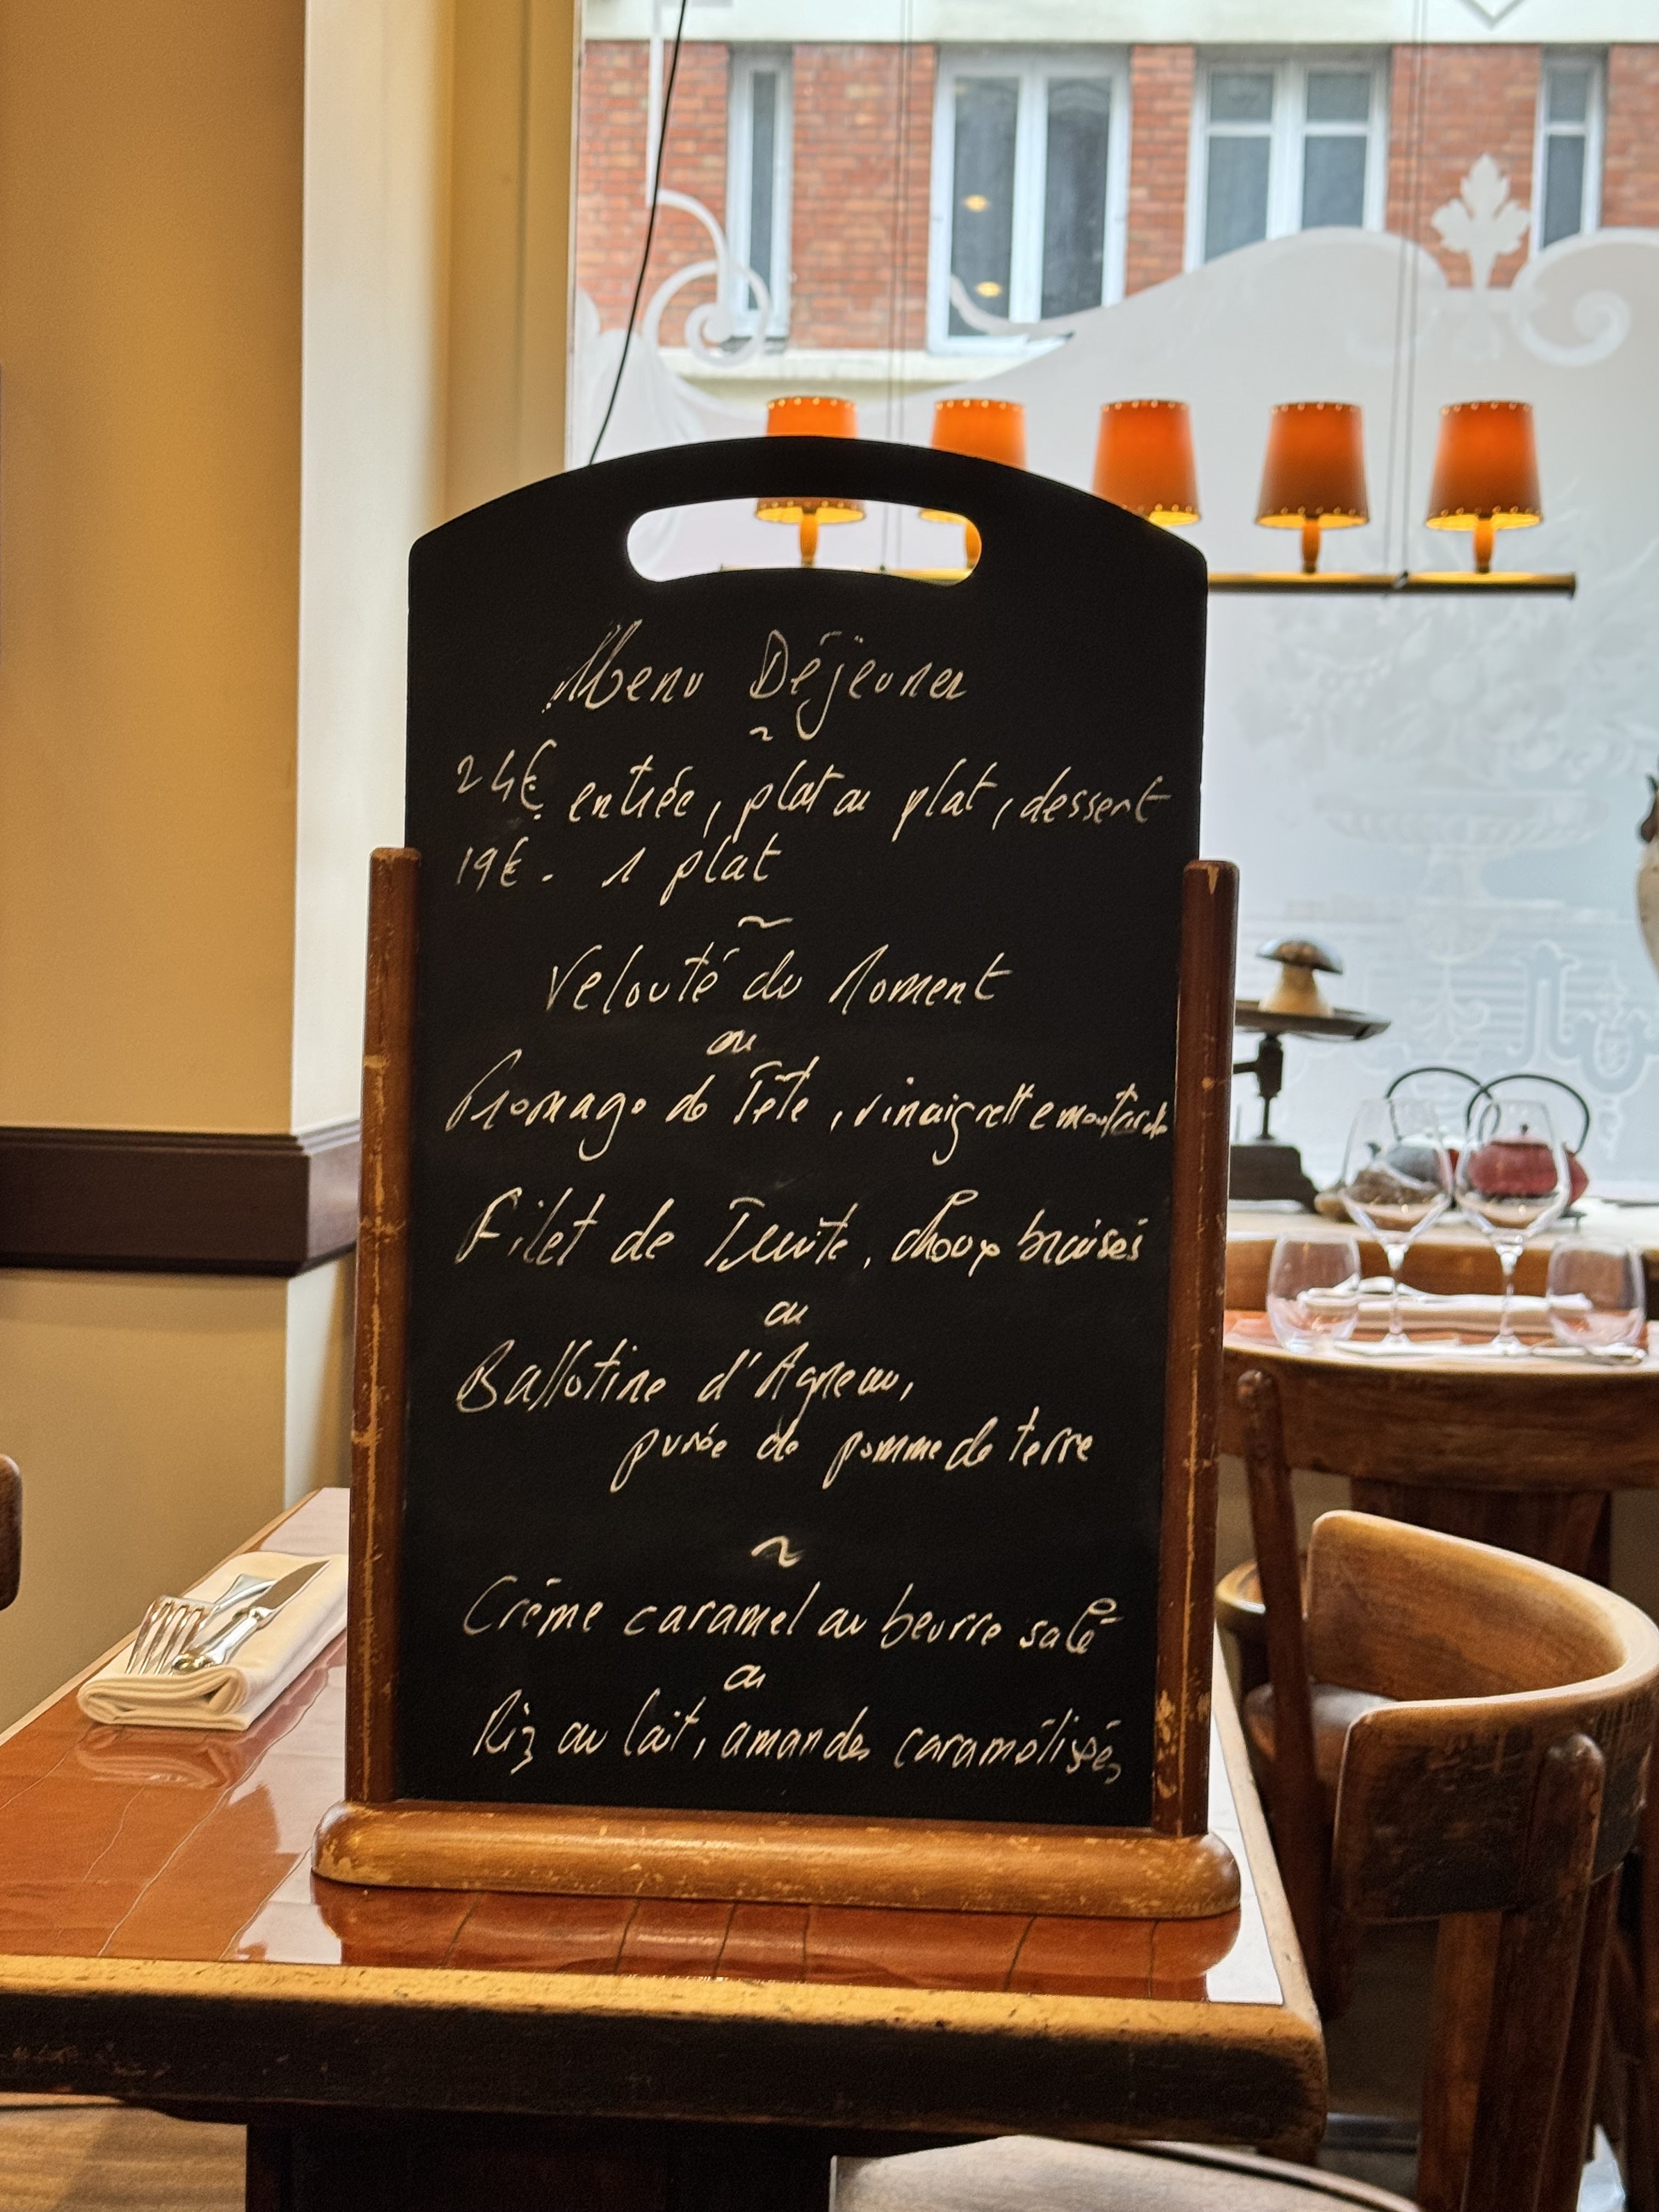 Menu Déjeuner
~
24€. entrée, plat ou plat, dessert
19€. 1 plat
~
Velouté du Moment
ou
Fromage de Tête, vinaigrette moutarde
Filet de Truite, Choux braisés
ou
Ballotine d'Agneau,
purée de pomme de terre
~
Crème caramel au beurre salé
ou
Riz au lait, amandes caramélisées